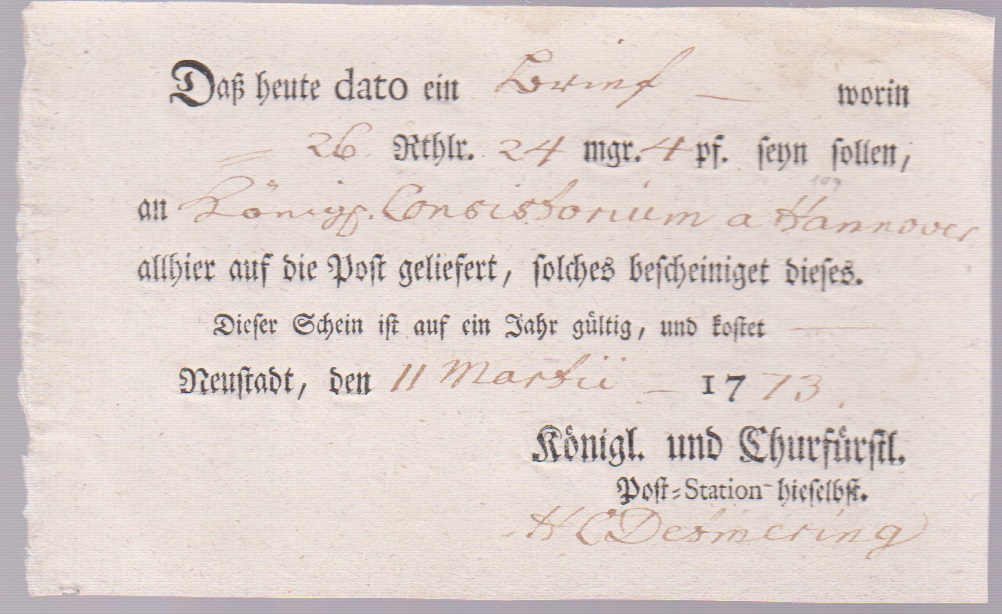 Daß heute dato ein Brief — worin
26 Rthlr. 24 mgr. 4 pf. seyn sollen,
an Königl. Consistorium a Hannover
allhier auf die Post geliefert, solches bescheiniget dieses.
Dieser Schein ist auf ein Jahr gültig, und kostet —
Neustadt, den 11 Martii — 1773.
Königl. und Churfürstl.
Post-Station hieselbst.
H C